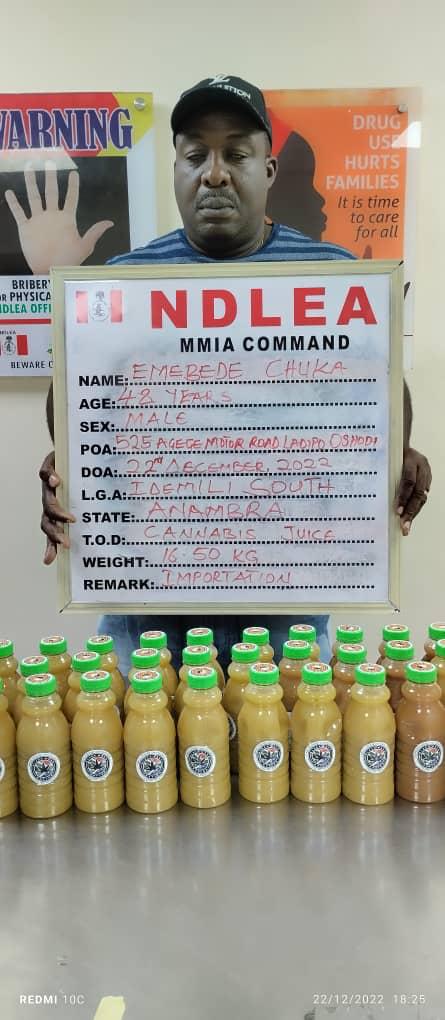 WARNING
BRIBERY
OR PHYSICA
NDLEA OFFI
BEWARE
DRUG
USE
HURTS
FAMILIES
It is time
to care
for all
NDLEA
MMIA COMMAND
NAME: EMEBEDE CHUKA
AGE: 42 YEARS
SEX: MALE
POA: 525 AGEGE MOTOR ROAD LADIPO OSHODI
DOA: 22nd DECEMBER, 2022
L.G.A: IDEMILI SOUTH
STATE: ANAMBRA
T.O.D: CANNABIS JUICE
WEIGHT: 16.50 KG
REMARK: IMPORTATION
REDMI 10C
22/12/2022 18:25